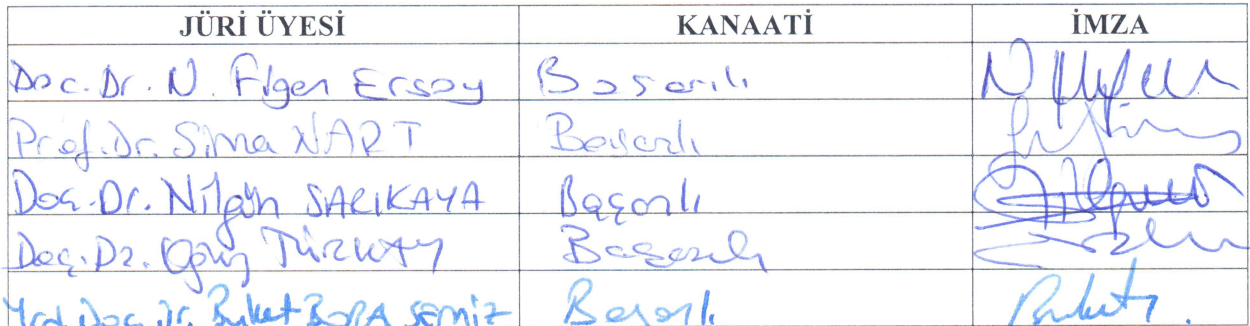 JÜRİ ÜYESİ KANAATİ İMZA
Doc. Dr. N. Figen Ersoy Başarılı
Prof. Dr. Sima NART Başarılı
Doç. Dr. Nilgün SARIKAYA Başarılı
Doç. Dr. Oğuz TÜRKAY Başarılı
Yrd. Doç. Dr. Buket BORA SEMİZ Başarılı